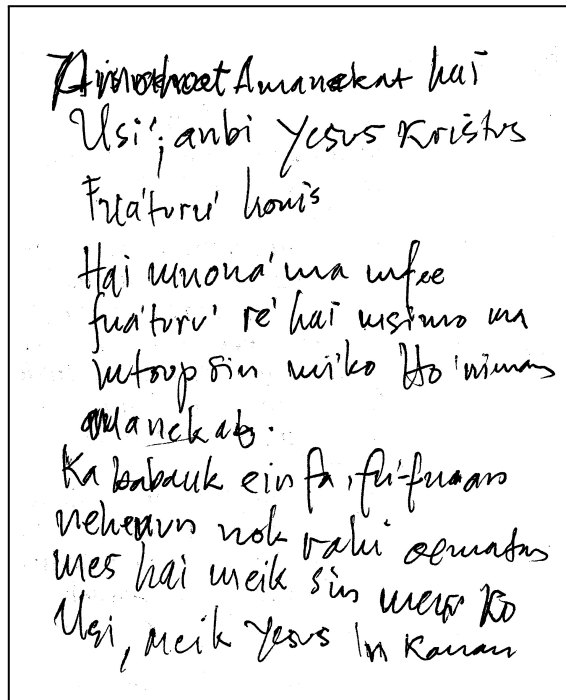 Amanekat hai
Usi', anbi Yesus Kristus
Fua'turu' honis
Hai mnona' ma mfee
fua'turu' re' hai msimo ma
mtoup sin miko Ho 'niman
amanekat.
Ka babauk einfa, fu-fuman
neheun nok rahi oematas
mes hai meik sin meu Ko
Usi, meik Yesus In Kanan